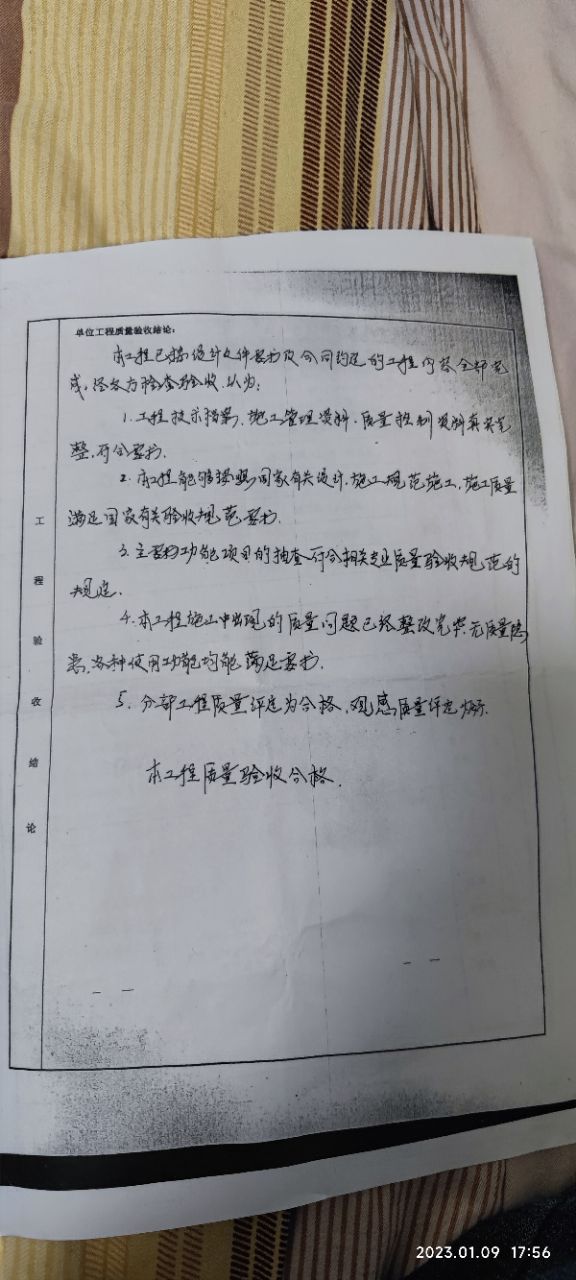 单位工程质量验收结论:
本工程已按设计文件要求及合同约定的工程内容全部完
成,经各方检查验收,认为:
1.工程技术档案、施工管理资料、质量控制资料真实完
整,符合要求.
2.本工程能够按照国家有关设计、施工规范施工,施工质量
满足国家有关验收规范要求.
3.主要功能项目的抽查符合相关专业质量验收规范的
规定.
4.本工程施工中出现的质量问题已经整改完毕,无质量隐
患,各种使用功能均能满足要求.
5.分部工程质量评定为合格,观感质量评定为好.
本工程质量验收合格.
工
程
验
收
结
论
2023.01.09 17:56